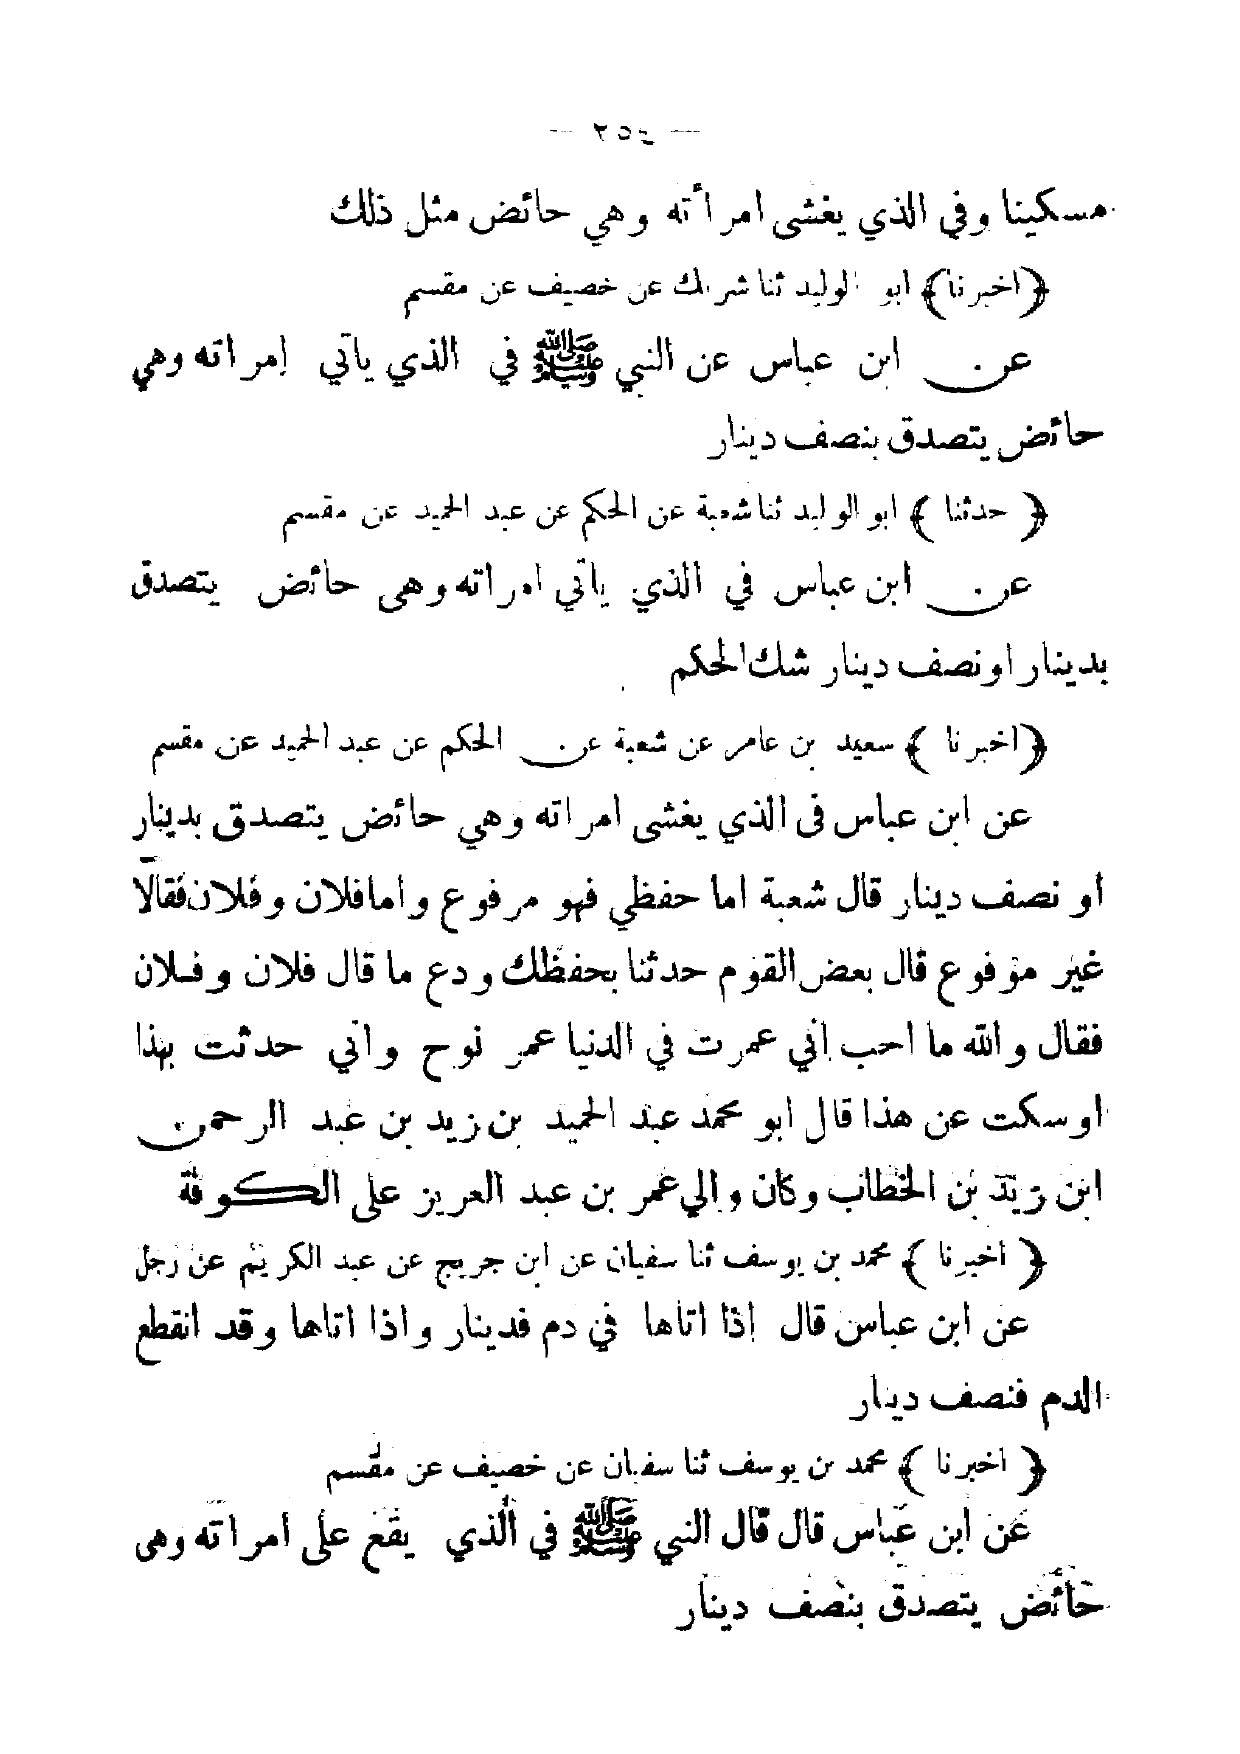 — ٢٥٤ —
مسكينا وفي الذي يغشى امرأته وهي حائض مثل ذلك
﴿اخبرنا﴾ ابو الوليد ثنا شريك عن خصيف عن مقسم
عن ابن عباس عن النبي ﷺ في الذي ياتي إمراته وهي
حائض يتصدق بنصف دينار
﴿ حدثنا ﴾ ابو الوليد ثنا شعبة عن الحكم عن عبد الحميد عن مقسم
عن ابن عباس في الذي ياتي امراته وهى حائض يتصدق
بدينار اونصف دينار شك الحكم
﴿اخبرنا ﴾ سعيد بن عامر عن شعبة عن الحكم عن عبد الحميد عن مقسم
عن ابن عباس فى الذي يغشى امراته وهي حائض يتصدق بدينار
أو نصف دينار قال شعبة اما حفظي فهو مرفوع وامافلان وفلان فقالا
غير مرفوع قال بعض القوم حدثنا بحفظك ودع ما قال فلان وفلان
فقال والله ما احب إني عمرت في الدنيا عمر نوح واني حدثت بهذا
اوسكت عن هذا قال ابو محمد عبد الحميد بن زيد بن عبد الرحمن
ابن زيد بن الخطاب وكان والي عمر بن عبد العزيز على الكوفة
﴿ اخبرنا ﴾ محمد بن يوسف ثنا سفيان عن ابن جريج عن عبد الكريم عن رجل
عن ابن عباس قال إذا اتاها في دم فدينار واذا اتاها وقد انقطع
الدم فنصف دينار
﴿ اخبرنا ﴾ محمد بن يوسف ثنا سفيان عن خصيف عن مقسم
عن ابن عباس قال قال النبي ﷺ في الذي يقع على امراته وهى
حائض يتصدق بنصف دينار